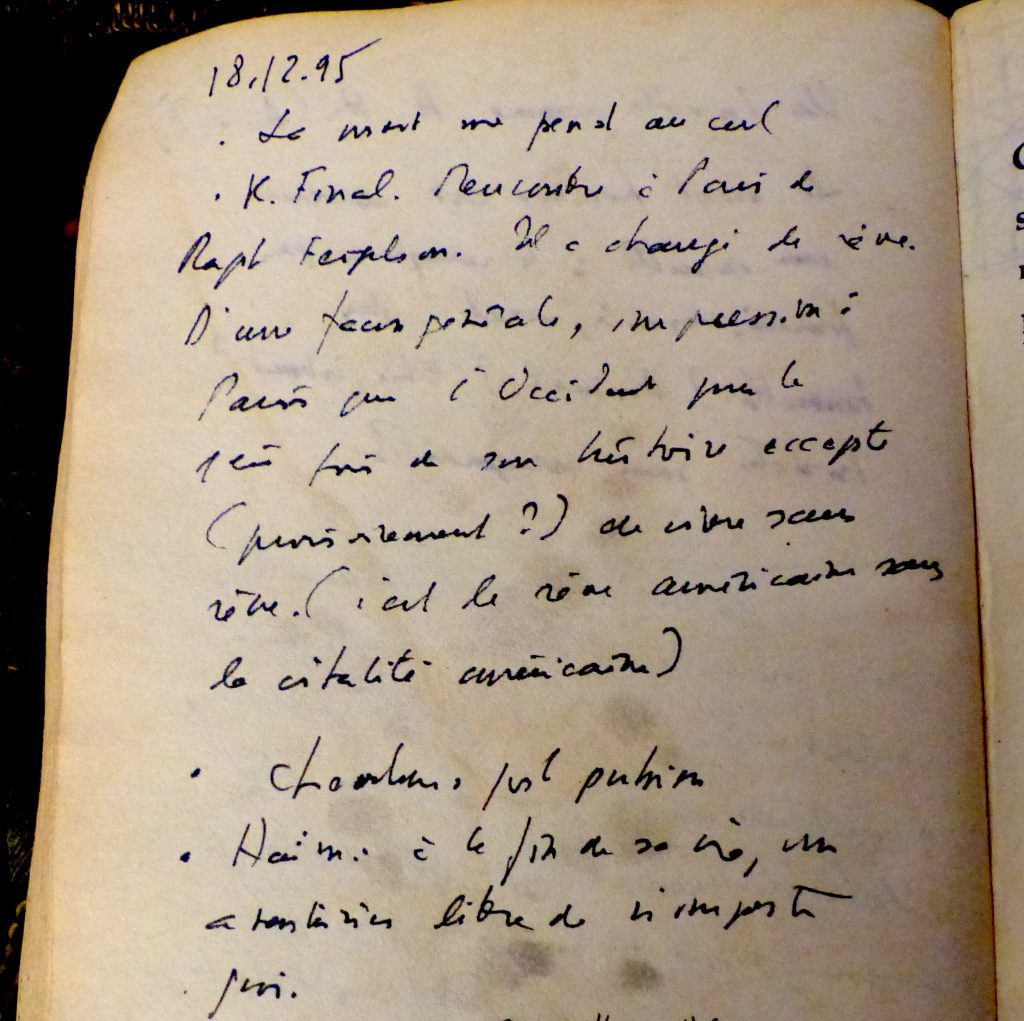 18.12.95
. La mort me pend au cul
. K. Final. Rencontre à Paris de
Raph. Il a changé de rêve.
D'une façon générale, impression à
Paris que l'Occident pour la
1ère fois de son histoire accepte
(provisoirement ?) de vivre sans
rêve. ( c'est le rêve américain sans
la vitalité américaine)
.
. Haïm : à la fin de sa vie, un
aventurier libre de n'importe
quoi.